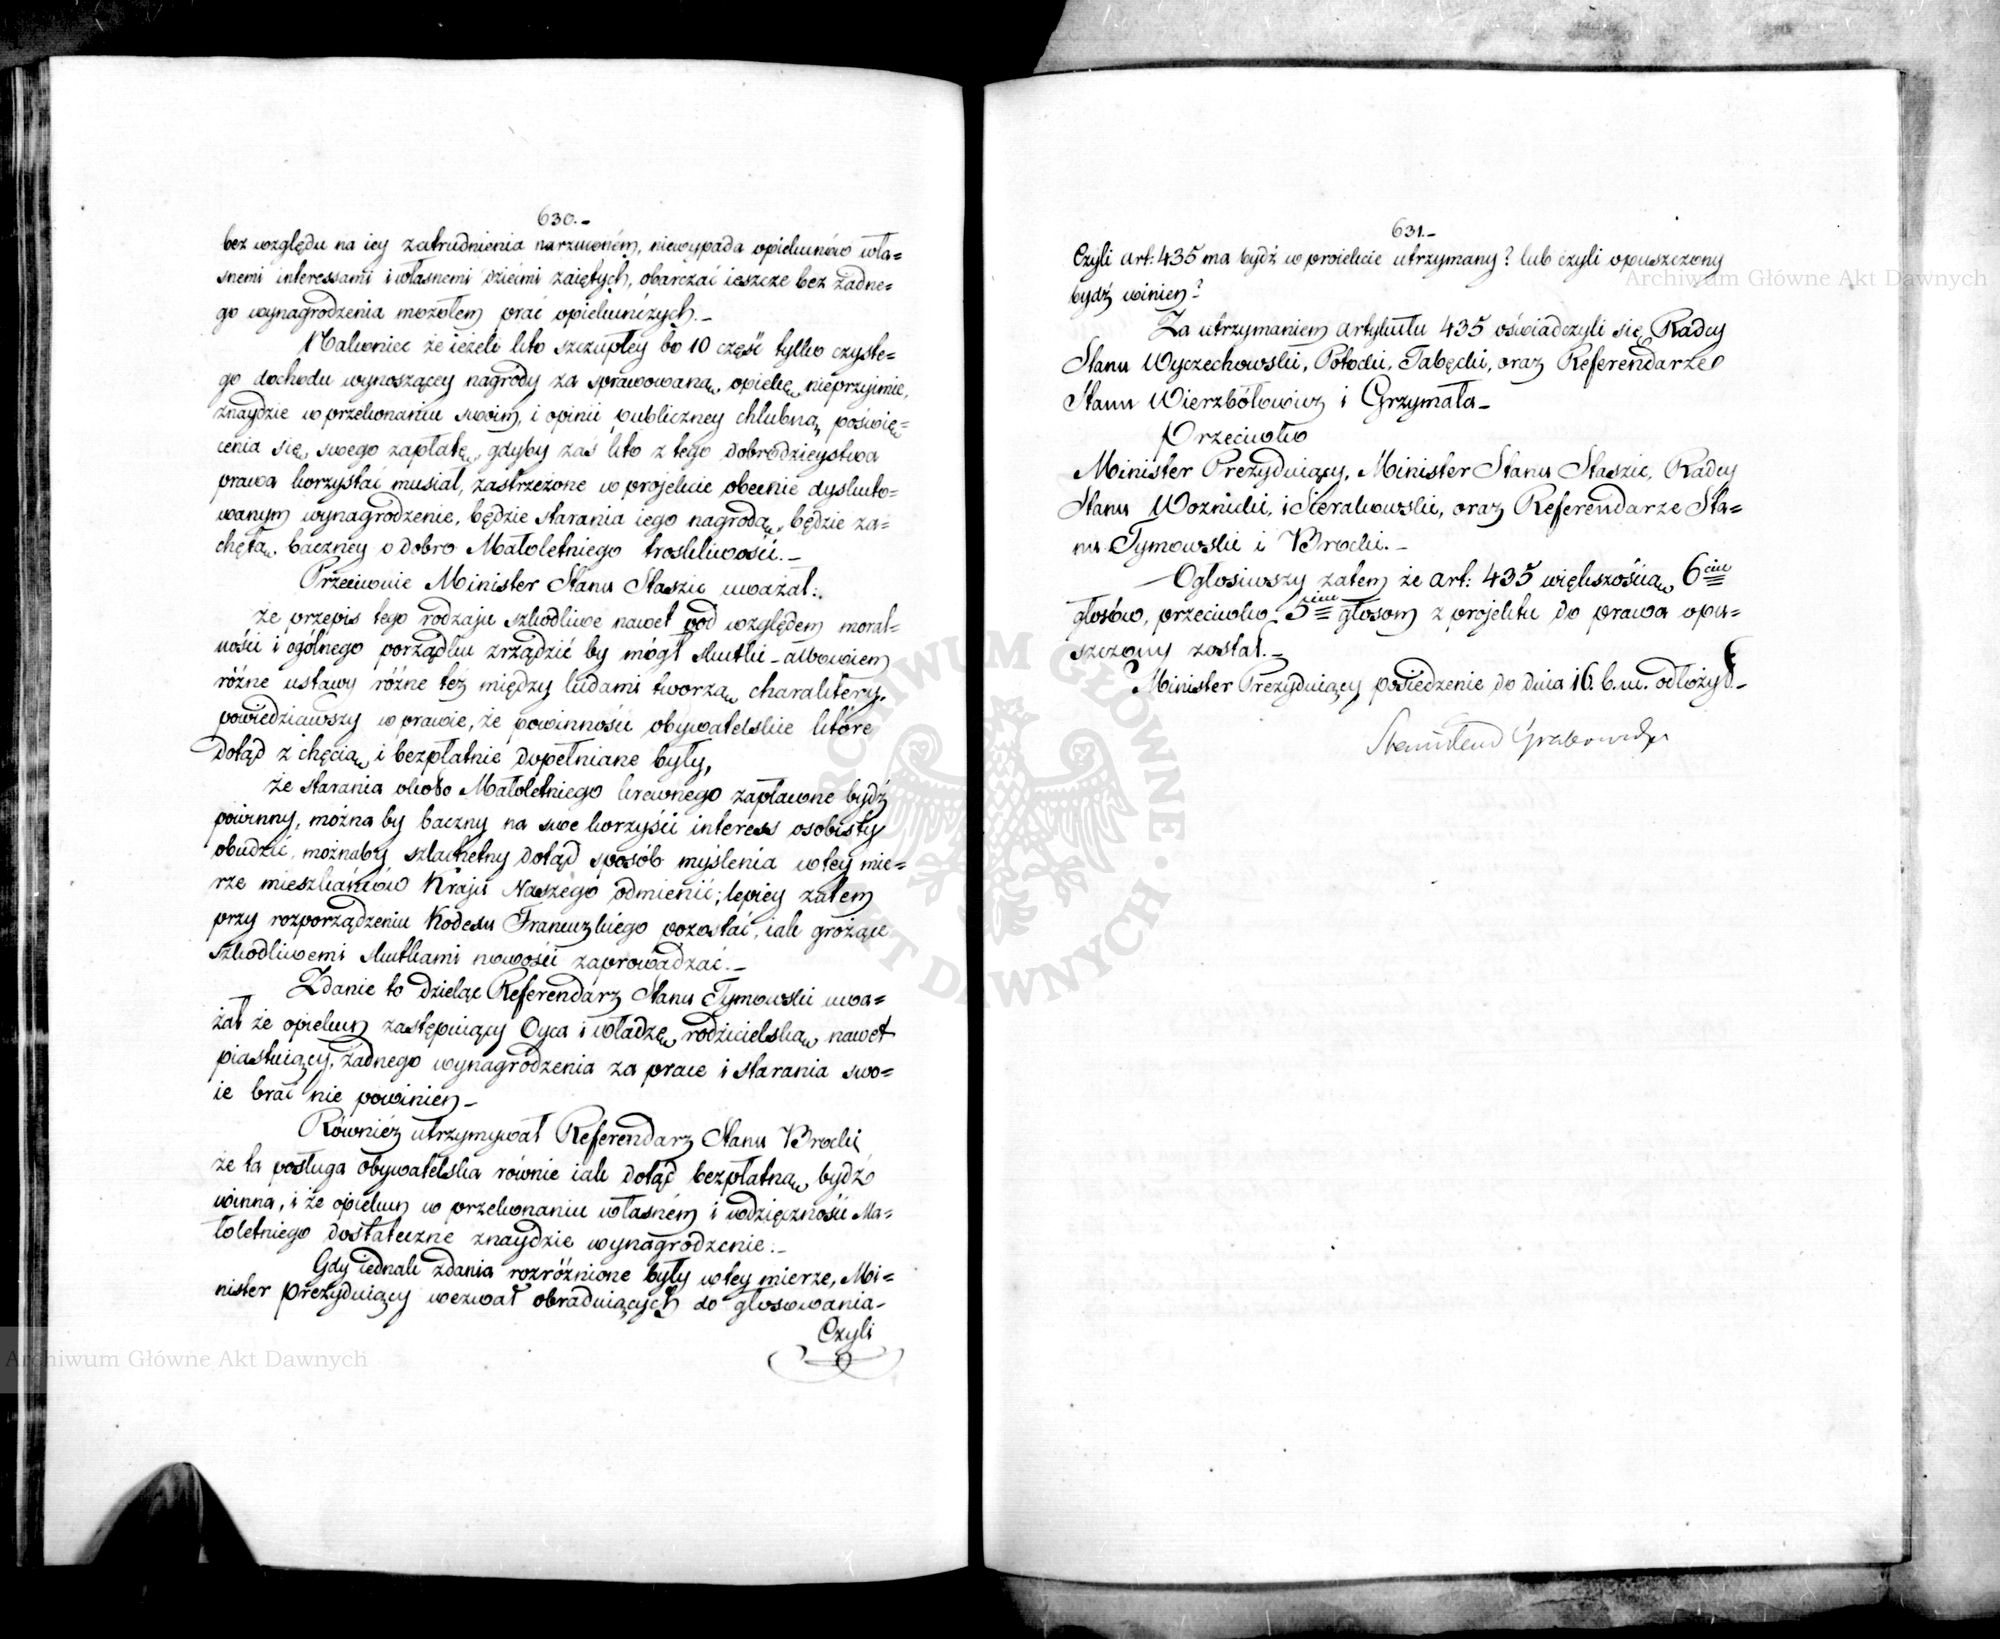 630.-
bez względu na iey zatrudnienia narzuconém, niewypada opiekunów wła=
snemi interessami i własnemi dziećmi zaiętych, obarczać ieszcze bez żadne=
go wynagrodzenia mozołem prac opiekuńczych.-
Nakoniec że ieżeli kto szczupłey bo 10 część tylko czyste=
go dochodu wynoszącey nagrody za sprawowaną opiekę nieprzyimie,
znaydzie w przekonaniu swoim, i opinii publiczney chlubną poświę=
cenia się swego zapłatę, gdyby zaś kto z tego dobrodzieystwa
prawa korzystać musiał, zastrzeżone w projekcie obecnie dyskuto=
wanym wynagrodzenie, będzie starania iego nagrodą, będzie za=
chętą baczney o dobro Małoletniego troskliwości.-
Przeciwnie Minister Stanu Staszic uważał:
że przepis tego rodzaju szkodliwe nawet pod względem moral=
ności i ogólnego porządku zrządzić by mógł skutki - albowiem
różne ustawy różne też między ludami tworzą charaktery,
powiedziawszy w prawie, że powinności obywatelskie które
dotąd z chęcią i bezpłatnie dopełniane były,
że starania około Małoletniego krewnego zapłacone bydź
powinny, można by baczny na swe korzyści interess osobisty
obudzić, możnaby szlachetny dotąd sposób myślenia w tey mie=
rze mieszkańców Kraju Naszego odmienić; lepiey zatem
przy rozporządzeniu Kodexu Francuzkiego pozostać, iak grożące
szkodliwemi skutkami nowości zaprowadzać.-
Zdanie to dzieląc Referendarz Stanu Tymowski uwa=
żał że opiekun zastępuiący Oyca i władzę rodzicielską nawet
piastuiący, żadnego wynagrodzenia za prace i starania swo=
ie brać nie powinien-
Również utrzymywał Referendarz Stanu Brocki
że ta posługa obywatelska równie iak dotąd bezpłatną bydź
winna, i że opiekun w przekonaniu własném i wdzięczności Ma=
łoletniego dostateczne znaydzie wynagrodzenie:-
Gdy iednak zdania rozróżnione były w tey mierze, Mi=
nister Prezyduiący wezwał obraduiących do głosowania-
Czyli
631.-
Czyli art: 435 ma bydź w proiekcie utrzymany? lub czyli opuszczony
bydź winien?
Za utrzymaniem artykułu 435 oświadczyli się Radcy
Stanu Wyczechowski, Potocki, Tabęcki, oraz Referendarze
Stanu Wierzbółowicz i Grzymała-
Przeciwko
Minister Prezyduiący, Minister Stanu Staszic, Radcy
Stanu Woznicki, i Sierakowski, oraz Referendarze Sta=
nu Tymowski i Brocki.-
Ogłosiwszy zatem że art: 435 większością 6ciu
głosów, przeciwko 5ciu głosom z projektu do prawa opu=
szczony został.-
Minister Prezyduiący posiedzenie do dnia 16. b. m. odłożył-
Stanisław Grabowski
Archiwum Główne Akt Dawnych
Archiwum Główne Akt Dawnych
ARCHIWUM GŁÓWNE · AKT DAWNYCH ·